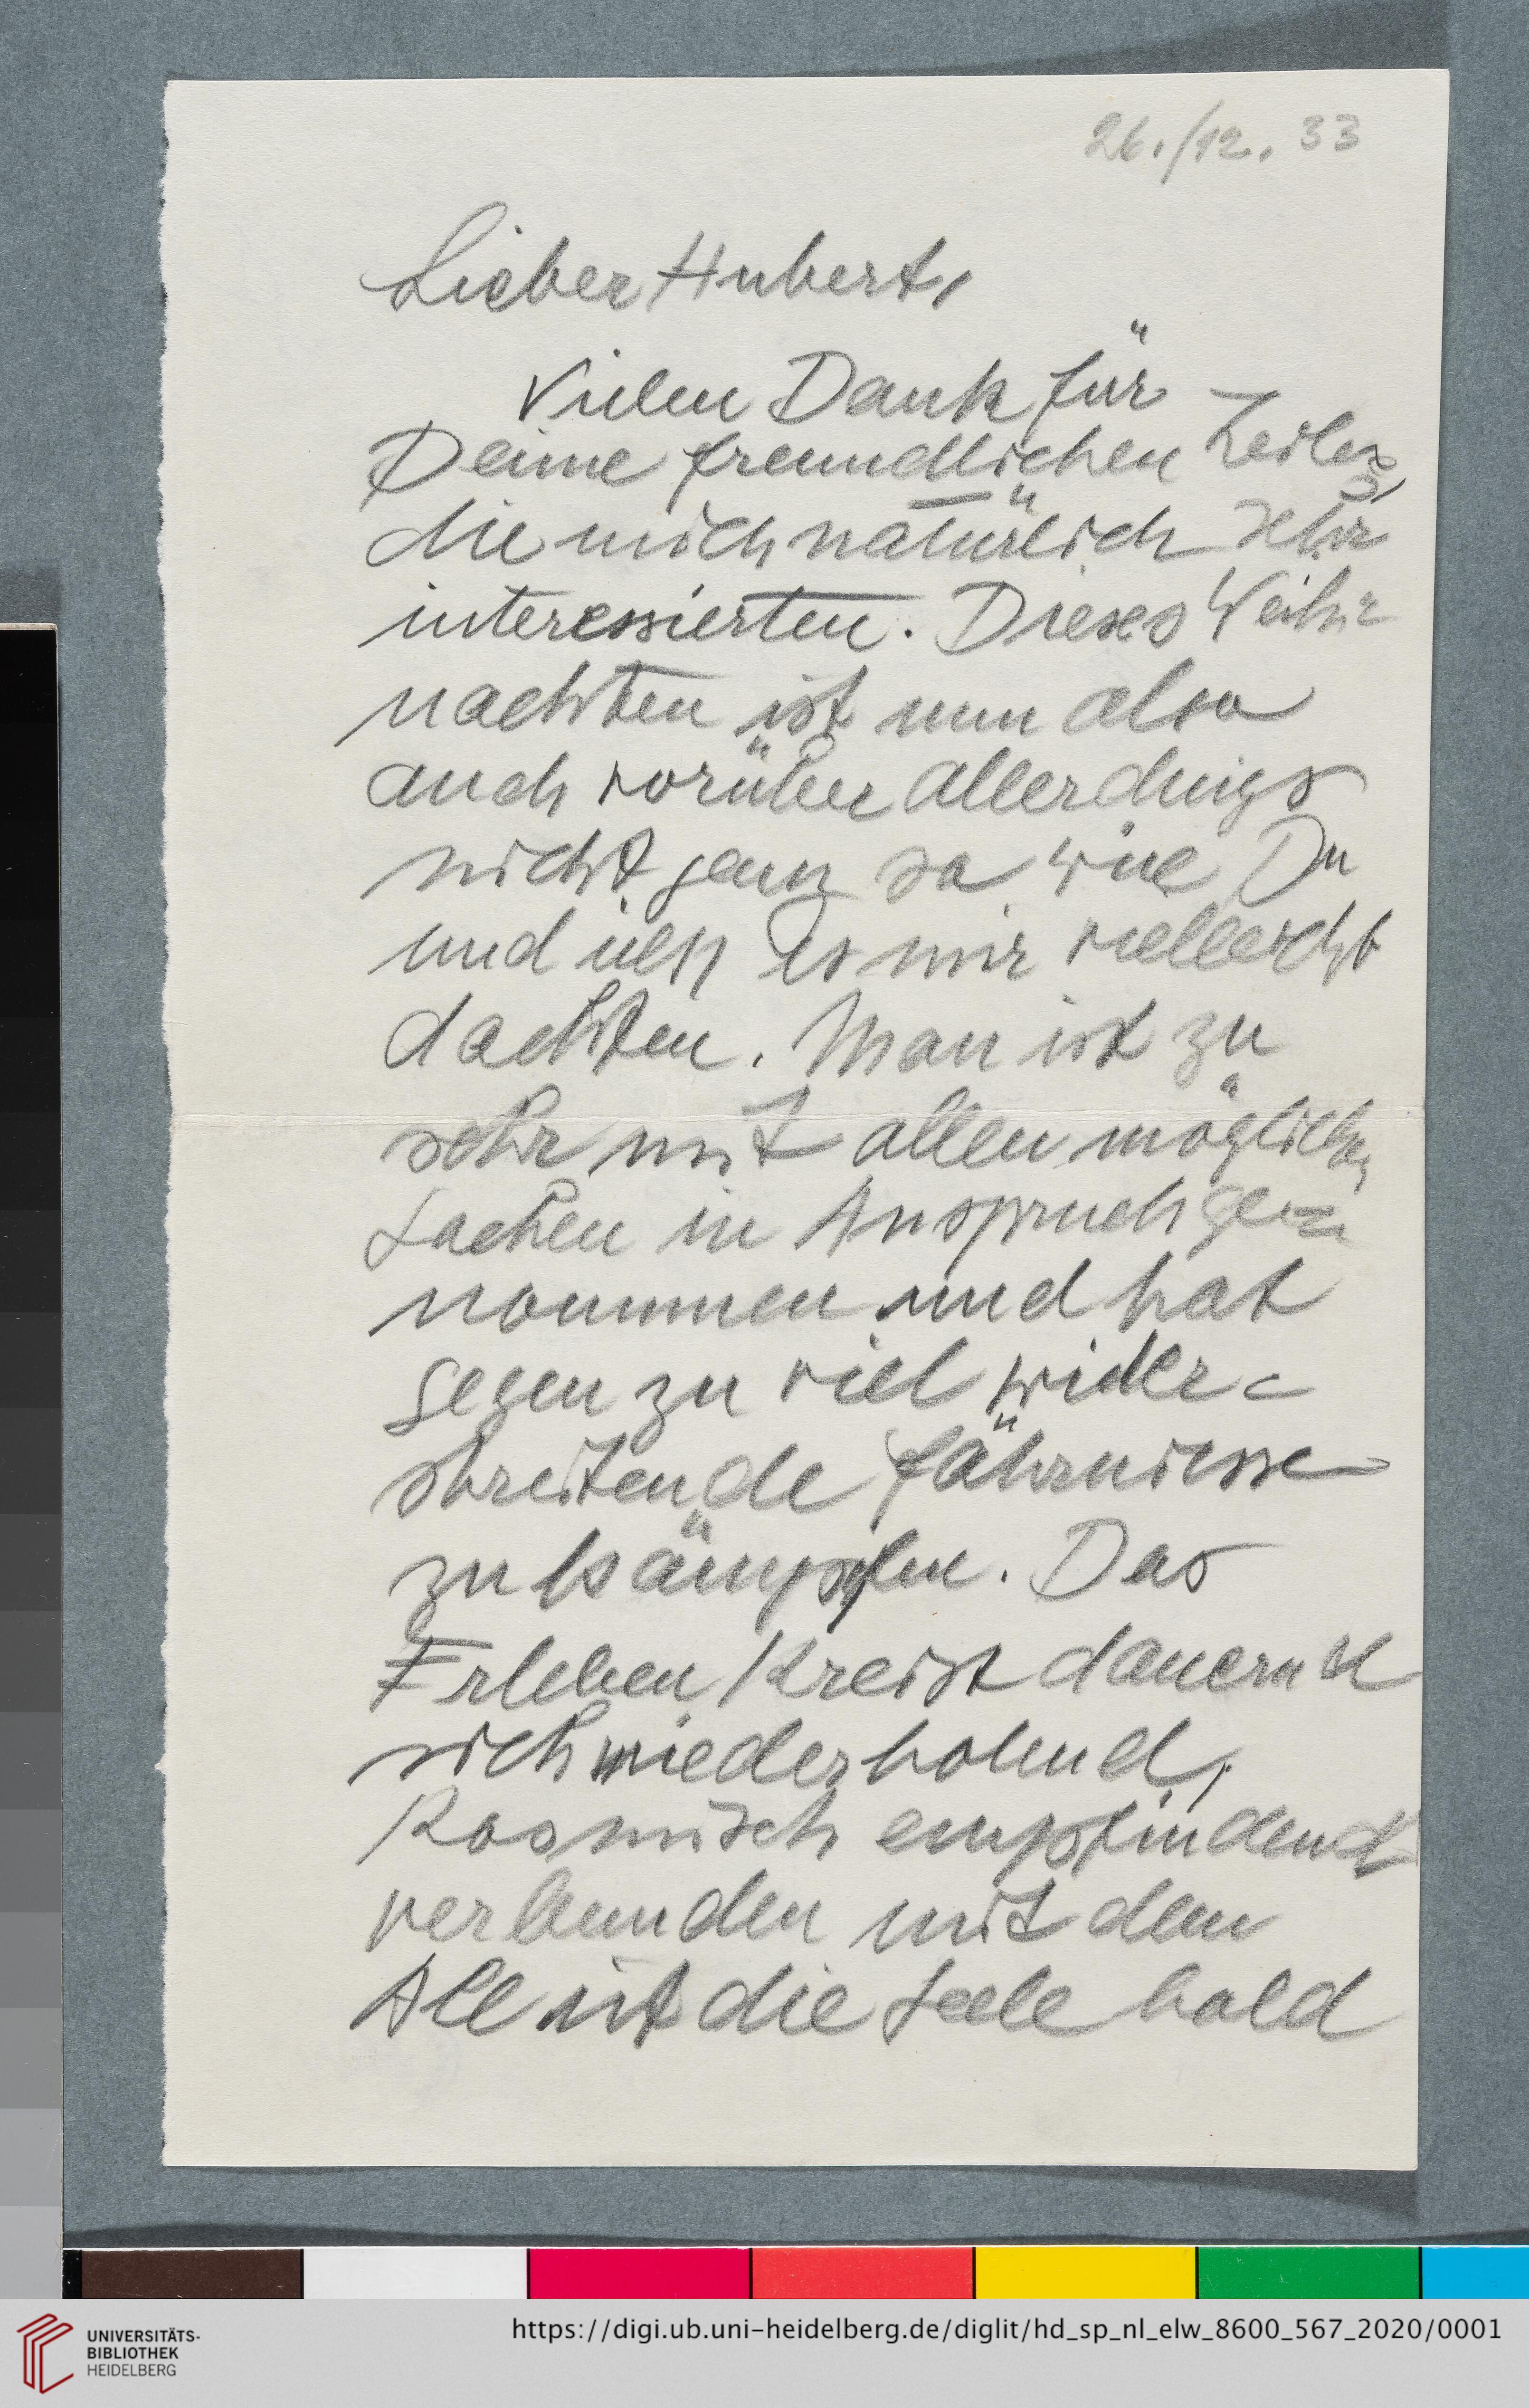 26./12. 33
Lieber Hubert,
Vielen Dank für
Deine freundlichen Zeilen,
die mich natürlich sehr
interessierten. Dieses Weih-
nachten ist nun also
auch vorüber allerdings
nicht ganz so wie Du
und ich es mir vielleicht
dachten. Man ist zu
sehr mit allen möglichen
Sachen in Anspruch ge-
nommen und hat
gegen zu viel wider-
streitende Fährnisse
zu kämpfen. Das
Erleben kreist dauernd
sich wiederholend,
Kosmisch empfindend
verbunden mit dem
All ist die Seele bald
UNIVERSITÄTS-
BIBLIOTHEK
HEIDELBERG
https://digi.ub.uni-heidelberg.de/diglit/hd_sp_nl_elw_8600_567_2020/0001